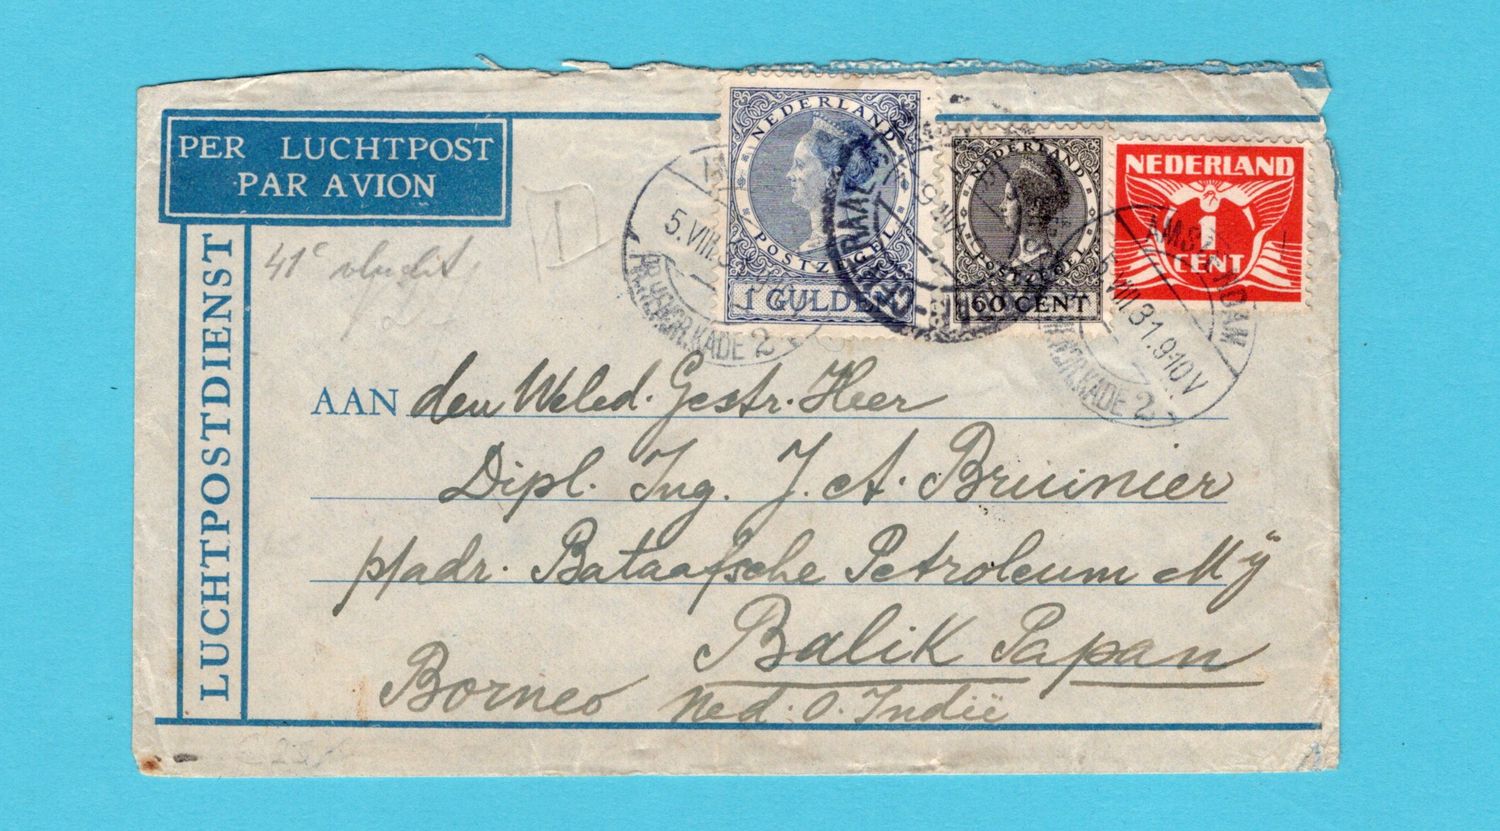 PER LUCHTPOST
PAR AVION
LUCHTPOSTDIENST
41e vlucht
NEDERLAND
POSTZEGEL
1 GULDEN
NEDERLAND
POSTZEGEL
60 CENT
NEDERLAND
1
CENT
5.VIII.3
PR.HENDR.KADE 2
AMSTERDAM
5.VIII 31.9-10V
KADE 2
AAN den Weled. Gestr. Heer
Dipl. Ing. J. A. Bruinier
p/adr. Bataafsche Petroleum Mij
Balik Papan
Borneo Ned. O. Indië